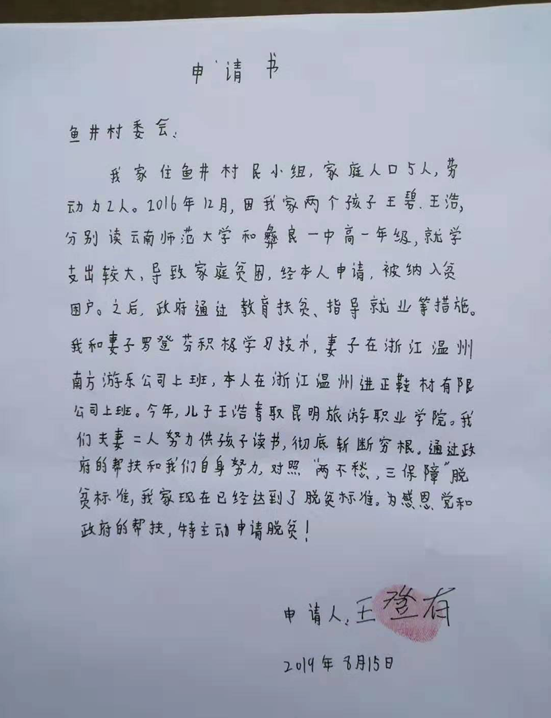 申请书
鱼井村委会：
我家住鱼井村民小组，家庭人口5人，劳
动力2人。2016年12月，因我家两个孩子王碧、王浩，
分别读云南师范大学和彝良一中高一年级，就学
支出较大，导致家庭贫困，经本人申请，被纳入贫
困户。之后，政府通过教育扶贫、指导就业等措施。
我和妻子罗登芬积极学习技术，妻子在浙江温州
南方游乐公司上班，本人在浙江温州进正鞋材有限
公司上班。今年，儿子王浩考取昆明旅游职业学院。我
们夫妻二人努力供孩子读书，彻底斩断穷根。通过政
府的帮扶和我们自身努力，对照“两不愁、三保障”脱
贫标准，我家现在已经达到了脱贫标准。为感恩党和
政府的帮扶，特主动申请脱贫！
申请人：王登有
2019年8月15日